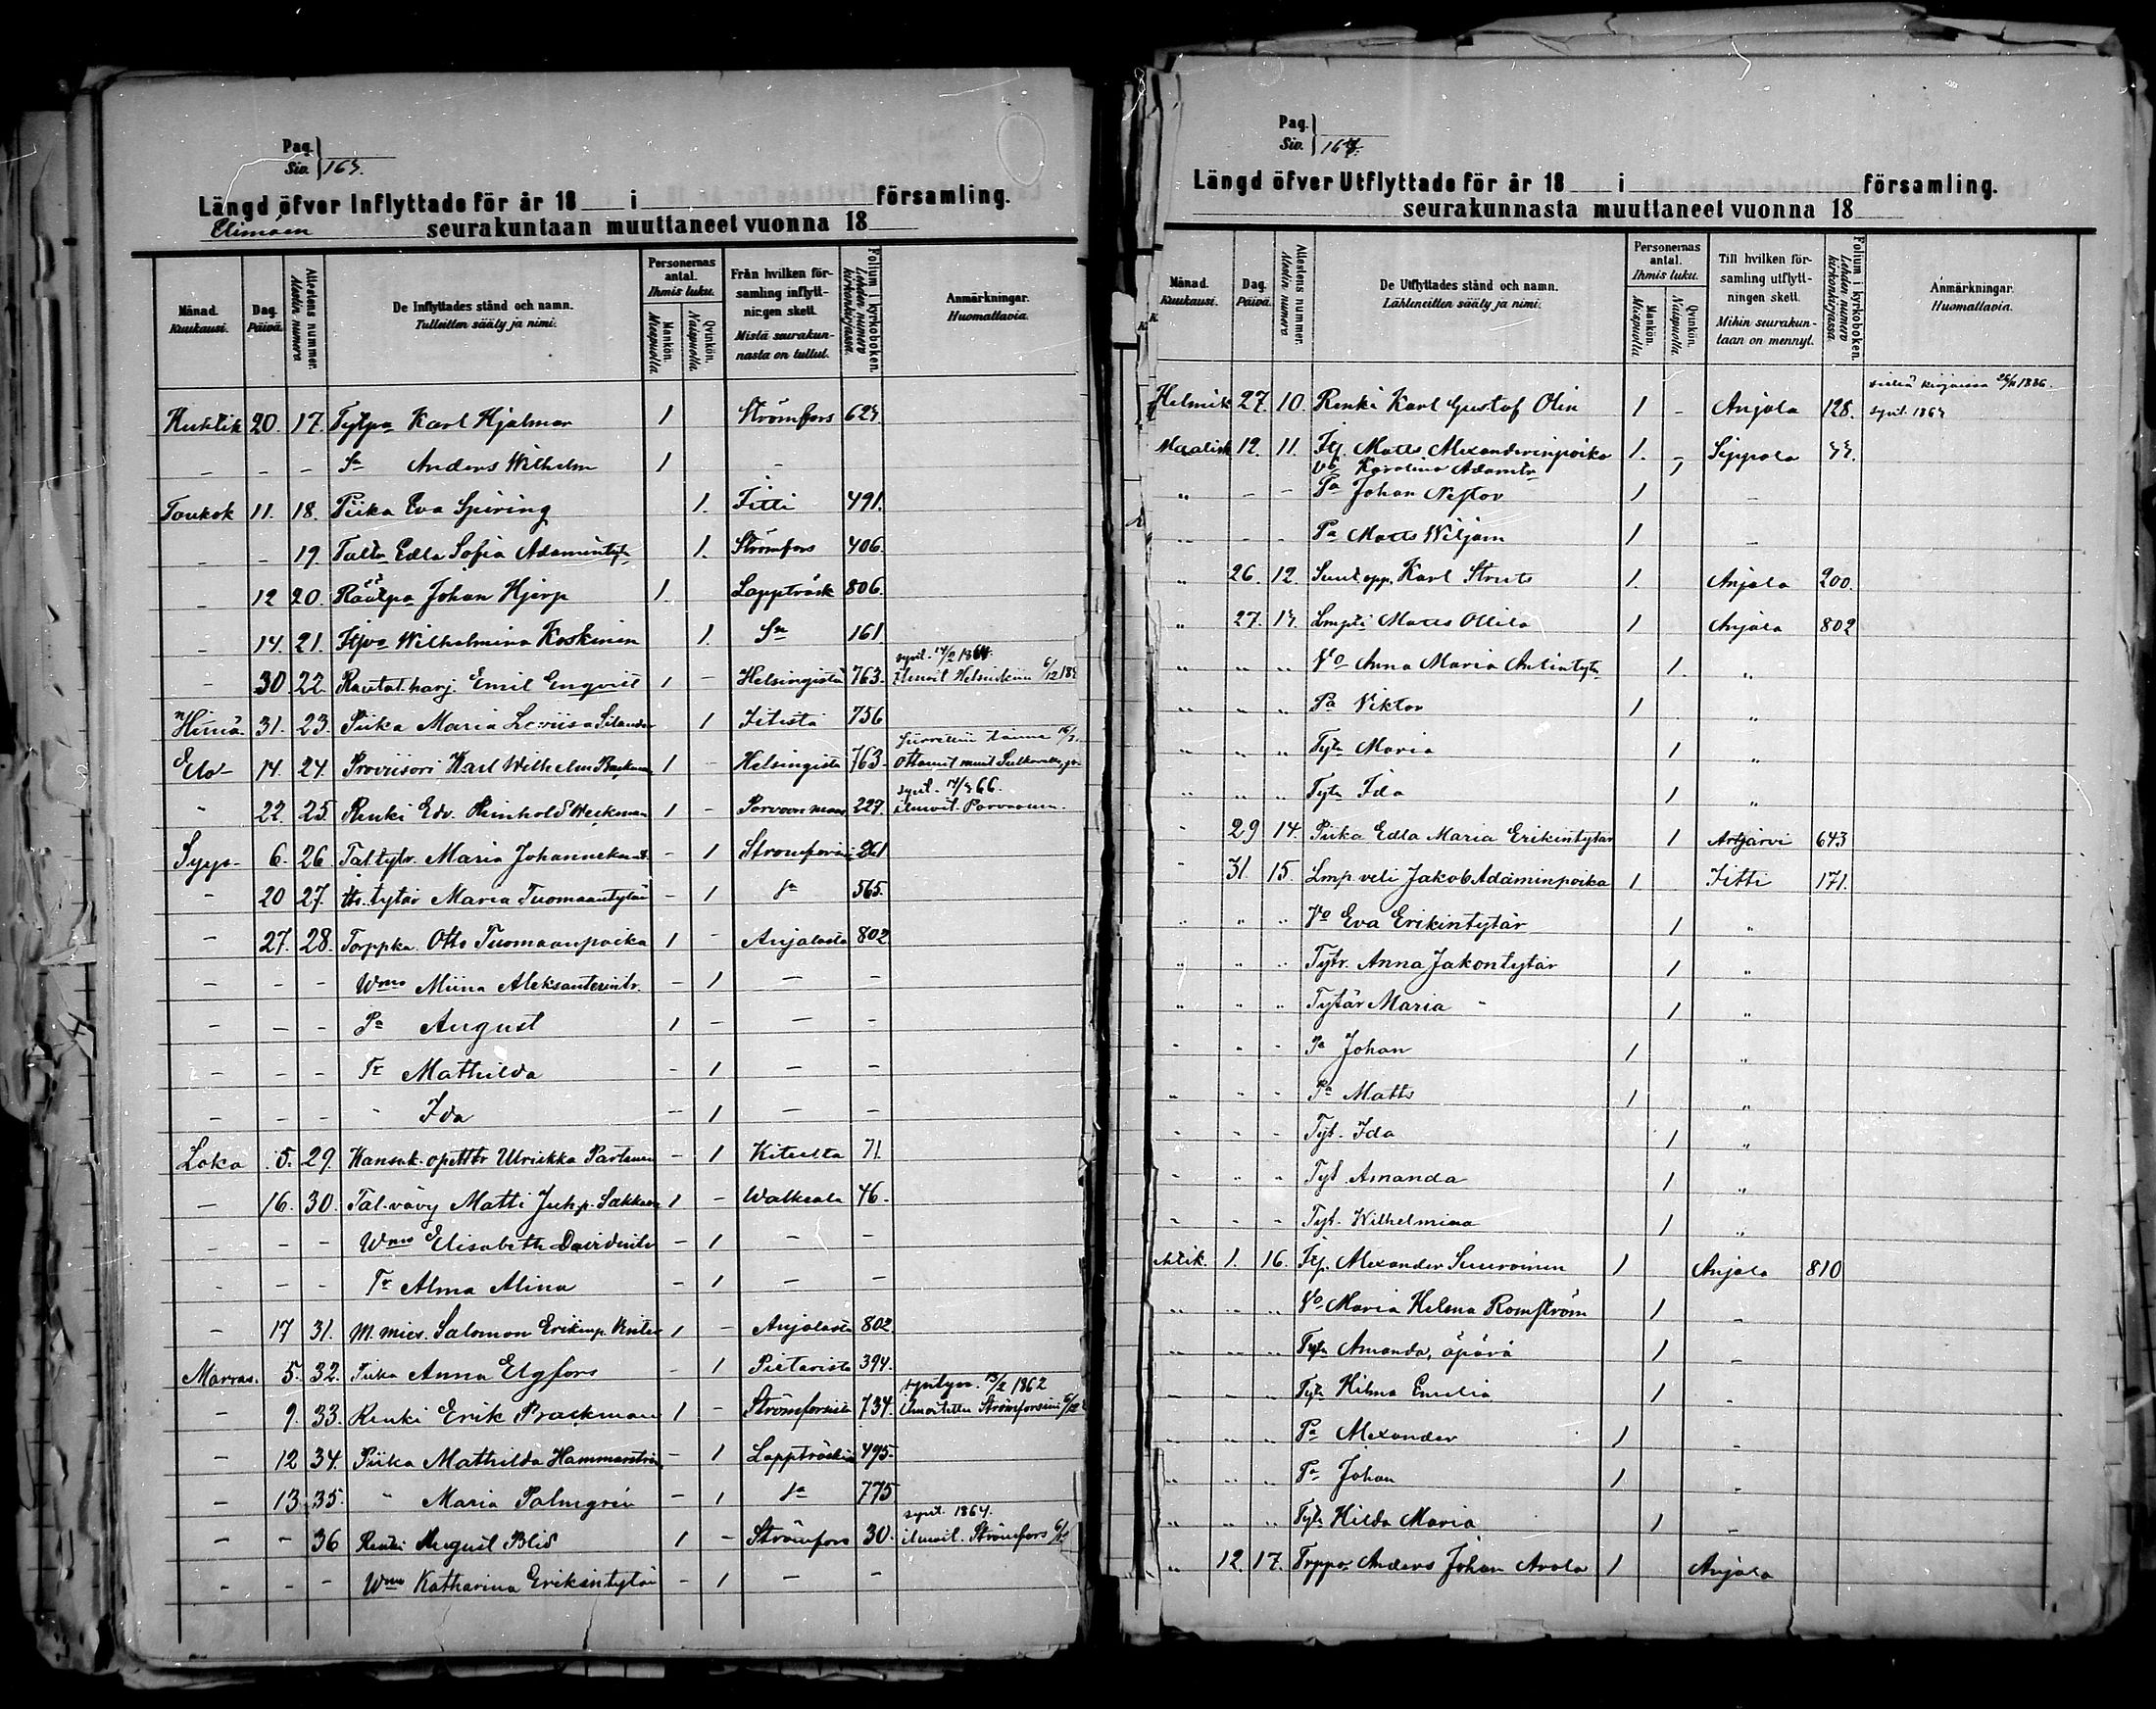 Pag.
Siv. 163.
Längd öfver Inflyttade för år 18 i församling.
Elimäen seurakuntaan muuttaneet vuonna 18
Månad. Kuukausi.
Dag. Päivä.
Attestens nummer. Atestin numero
De Inflyttades stånd och namn. Tulleitten sääty ja nimi.
Personernas antal. Ihmis luku.
Mankön. Miespuolia
Qvinkön. Naispuolia.
Från hvilken församling inflyttningen skett. Mistä seurakunnasta on tullut.
Folium i kyrkoboken. Lehden numero kirkonkirjassa.
Anmärkningar. Huomattavia.
Huhtik 20. 17. Tytpa Karl Hjalmar 1 Strömfors 623.
– – – Sa Anders Wilhelm 1 –
Toukok 11. 18. Piika Eva Spiring 1. Jitti 491.
– – 19. Edla Sofia Adamintyt 1. Strömfors 406.
– 12 20. Johan Hjerp 1. Lappträsk 806.
– 14. 21. Wilhelmina Koskinen 1. Sa 161
– 30 22. Rautat.harj. Emil Enqvist 1 – Helsingistä 763.
31. 23. Piika Maria Loviisa Silander 1 Jitistä 756
Elo– 14. 24. Proviisori Karl Wilhelm 1 – Helsingistä 763
" 22. 25. Renki Edv. Reinhold Weckman 1 – Porvoon 227.
Syys– 6. 26. Tal.tytr. Maria – 1 261
– 20 27. tytär Maria Tuomaantytär – 1 Sa 565.
– 27. 28. Torppka. Otto Tuomaanpoika 1 – Anjalasta 802
– – – Wmo Miina Aleksanterintr. – 1 – –
– – – Pa August 1 – – –
– – – Tr Mathilda – 1 – –
– – – " Ida – 1 – –
Loka 5. 29. Kansak. opettr Ulriikka Partanen – 1 71.
– 16. 30. Tal.vävy Matti Juh.p. 1 – Walkeala 46–
– – – Wmo Elisabeth – 1 – –
– – – Tr Alma Alina – 1 – –
– 17 31. M. mies. Salomon Erikinp. 1 – Anjalasta 802.
Marras. 5. 32. Piika Anna Elgfors – 1 Pietarista 394.
– 9. 33. Renki Erik Brackman 1 – 734.
– 12 34. Piika Mathilda Hammarström – 1 495.
– 13. 35. " Maria Palmgren – 1 Sa 775
– – 36 Renki August Blid 1 – Strömfors 30.
– – – Wmo Katharina Erikintytär – 1 – –
Pag.
Siv. 164.
Längd öfver Utflyttade för år 18 i församling.
seurakunnasta muuttaneet vuonna 18
Månad. Kuukausi.
Dag. Päivä.
Attestens nummer. Atestin numero
De Utflyttades stånd och namn. Lähteneitten sääty ja nimi.
Personernas antal. Ihmis luku.
Mankön. Miespuolia
Qvinkön. Naispuolia.
Till hvilken församling utflyttningen skett. Mihin seurakuntaan on mennyt.
Folium i kyrkoboken. Lehden numero kirkonkirjassa.
Anmärkningar. Huomattavia.
Helmik 27. 10. Renki Karl Gustof Olin 1 – Anjala 128. synt. 1863
Maalisk 12. 11. Itj. Matts Alexanderinpoika 1. Sippola 33.
Vo Karolina Adamtr
" – – Pa Johan Nestor 1 –
" – – Pa Matts Wiljam 1 –
" 26. 12. Karl Struts 1. Anjala 200.
" 27. 13. Lmpti Matts Ollila 1 Anjala 802
" " " Vo Anna Maria Antintytr 1. "
" " " Pa Viktor 1 "
" " " Tytr Maria 1 "
" " " Tytr Ida 1 "
" 29 14. Piika Edla Maria Erikintytär 1 Artjärvi 643
" 31. 15. Lmp. veli Jakob Adaminpoika 1 Jitti 171.
" " " Vo Eva Erikintytär 1 "
" " " Tytr. Anna Jakontytär 1 "
" " " Tytär Maria " 1 "
" " " Pa Johan 1 "
" " " Pa Matts 1 "
" " " Tyt. Ida 1 "
" " " Tyt. Amanda 1 "
" " " Tyt. Wilhelmina 1 "
1. 16. Itj. Alexander Suuroinen 1 Anjala 810
" " " Vo Maria Helena Romström 1 –
" " " Tytr Amanda, äpärä 1 –
– – – Tytr Hilma Emilia 1 –
" " " Pa Alexander 1 –
" " " Pa Johan 1 –
" " " Tytr Hilda Maria 1 –
" 12. 17. Torppa. Anders Johan Arola 1 Anjala